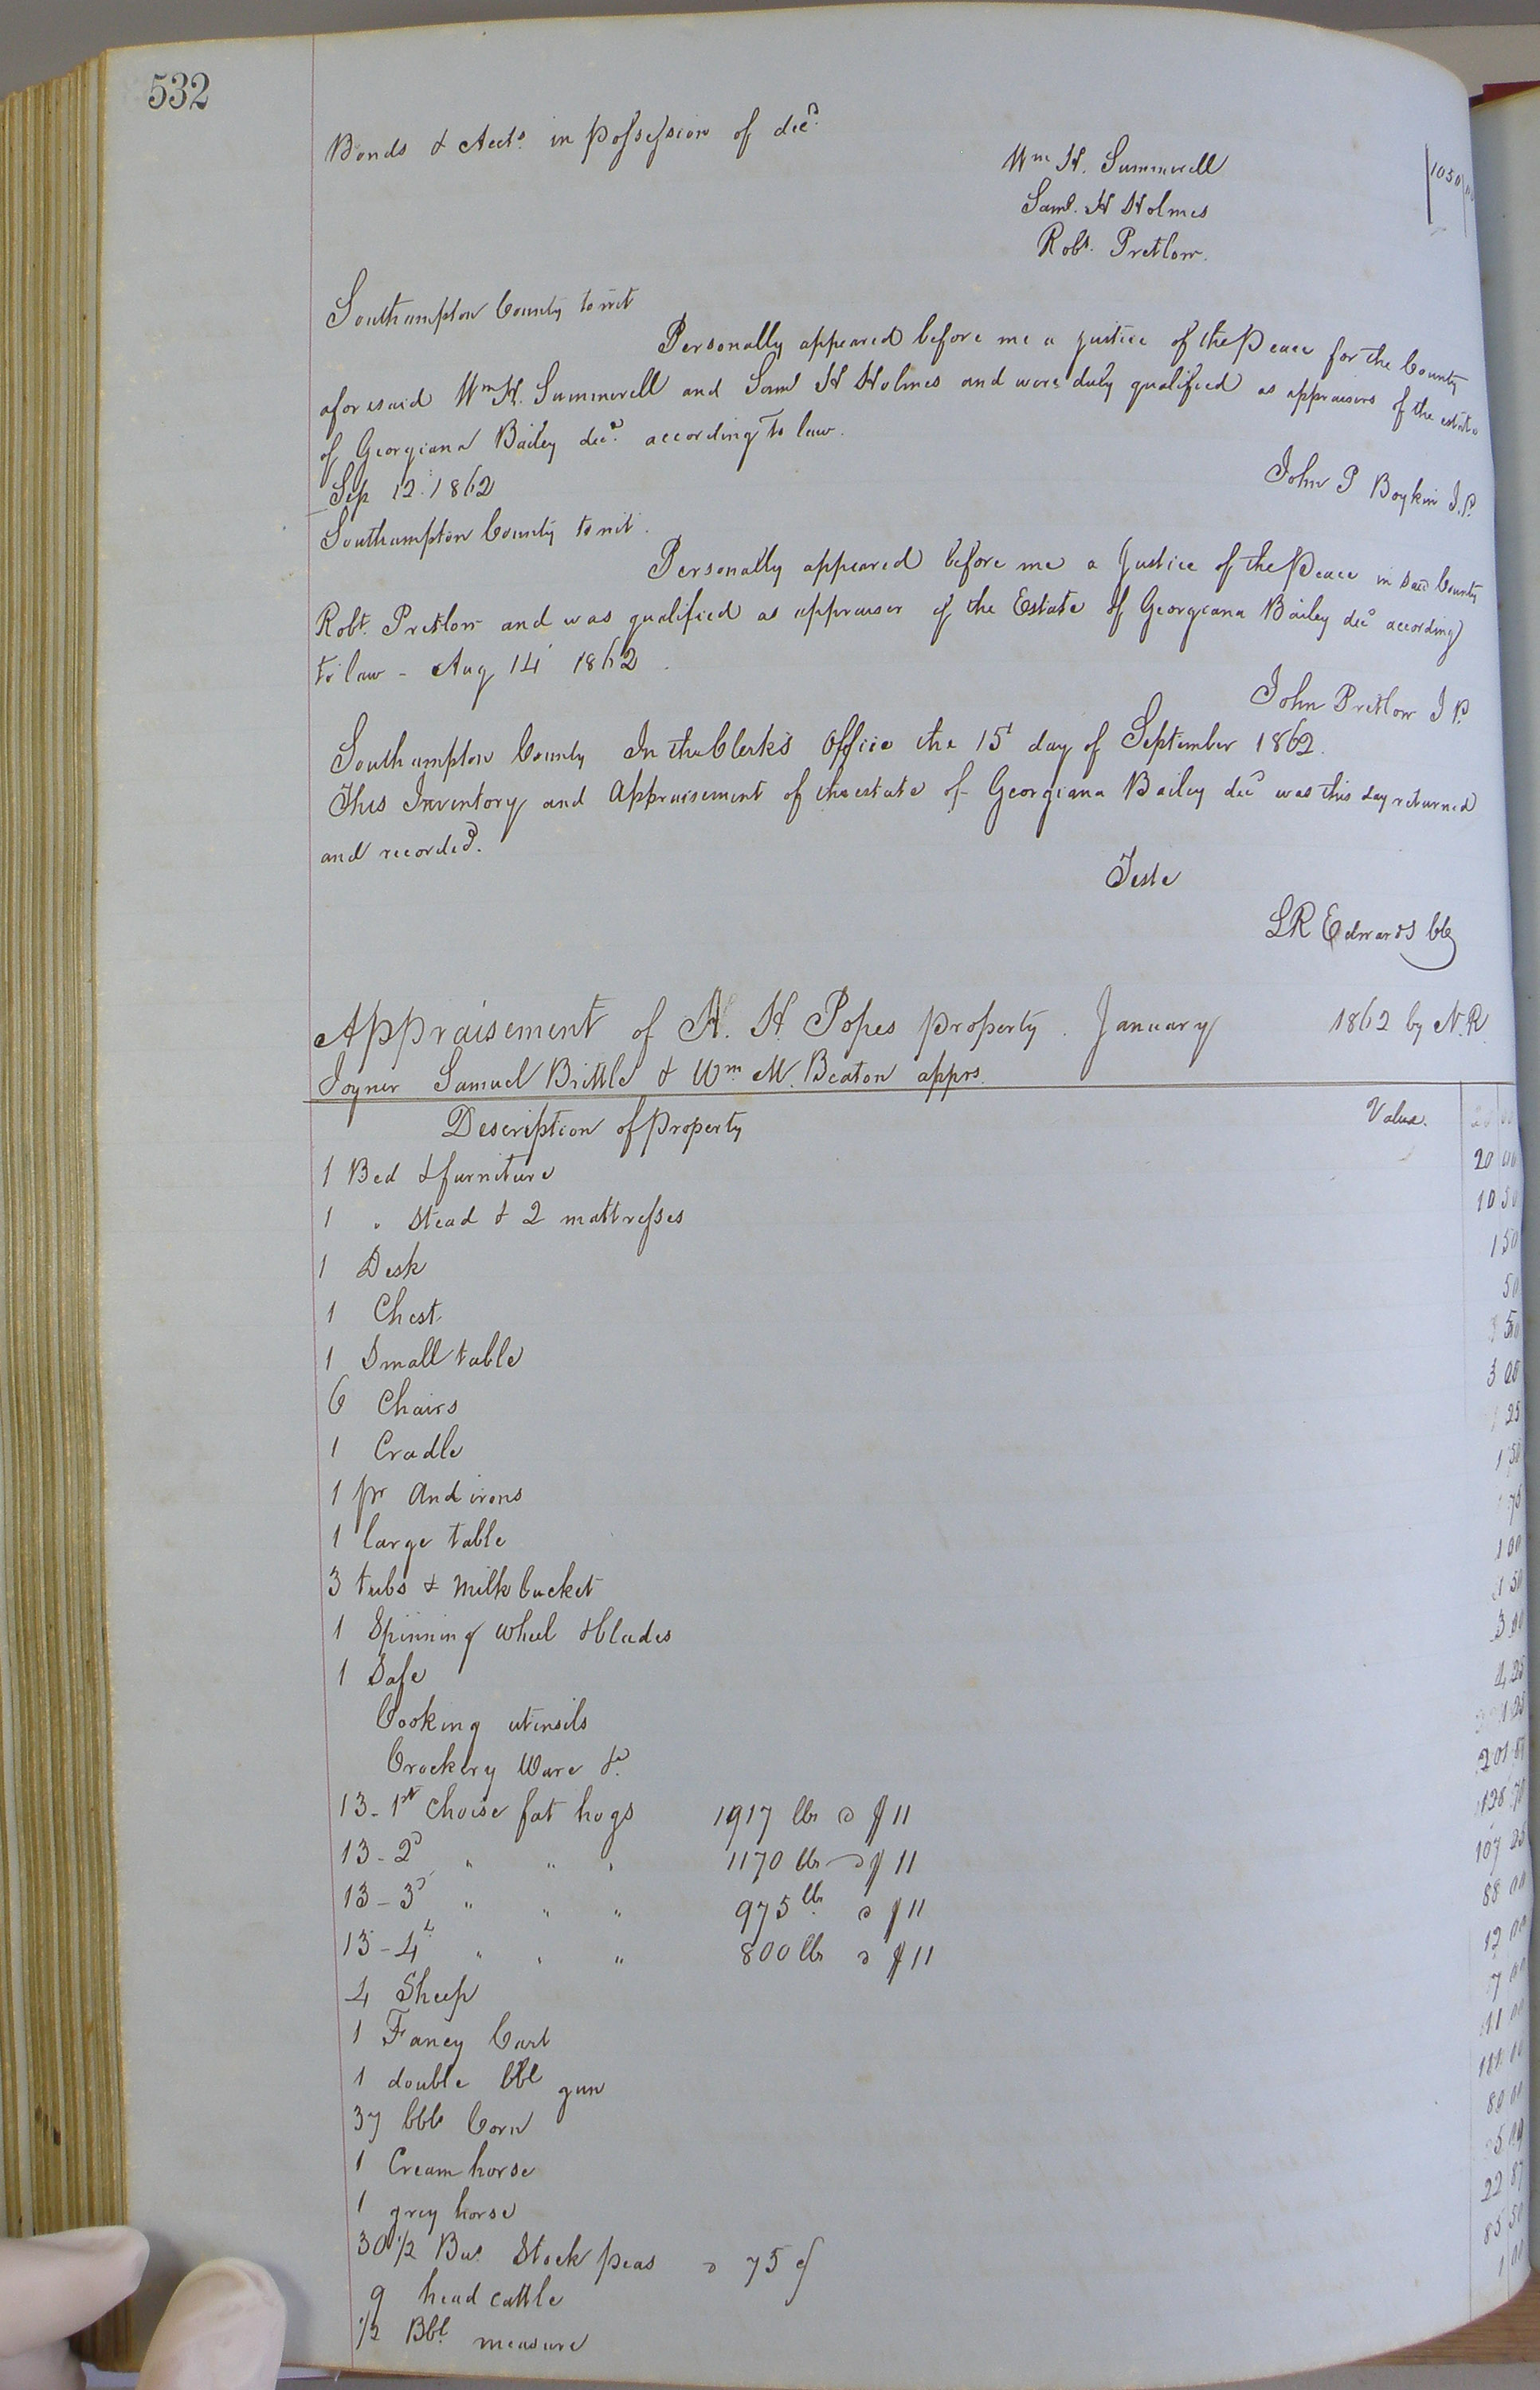 532
Bonds & Accts. in possession of decd.
1050
Wm H. Summerell
Saml. H Holmes
Robt. Pretlow.
Southampton County to wit
Personally appeared before me a justice of the Peace for the County
aforesaid Wm H. Summerell and Saml H Holmes and were duly qualified as appraisers of the estate
of Georgiana Bailey decd. according to law.
Sep 12. 1862
John P Boykin J.P.
Southampton County to wit.
Personally appeared before me a Justice of the Peace in said County
Robt. Pretlow and was qualified as appraiser of the Estate of Georgeana Bailey decd according
to law - Aug 14 1862
John Pretlow J P.
Southampton County In the Clerk's Office the 15 day of September 1862.
This Inventory and Appraisement of the estate of Georgiana Bailey decd was this day returned
and recorded.
Teste
LR Edwards Clk
Appraisement of H. H. Popes property. January 1862 by N. R.
Joyner Samuel Brittle & Wm. M. Beaton apprs.
Description of property Value.
1 Bed & furniture 20 00
1 " Stead & 2 mattresses 10 50
1 Desk 1 50
1 Chest 50
1 Small table 50
6 Chairs 3 00
1 Cradle 25
1 pr And irons 1 50
1 large table 75
3 tubs & Milk bucket 1 00
1 Spinning wheel & blades 1 50
1 Safe 3 00
Cooking utensils 4 25
Crockery Ware &c. 1 25
13 - 1st Choise fat hogs 1917 lbs @ 11
13 - 2d " " " 1170 lbs @ 11 128 70
13 - 3d " " " 975 lbs. @ 11 107 25
13 - 4th " " " 800 lbs @ 11 88 00
4 Sheep 12 00
1 Fancy Cart 7 00
1 double bbl gun 11 00
37 bbls Corn 111 00
1 Cream horse 80 00
1 grey horse
30 1/2 Bus. Stock peas @ 75 c 22 87
9 head cattle 85 50
1/2 Bbl. measure 1 00